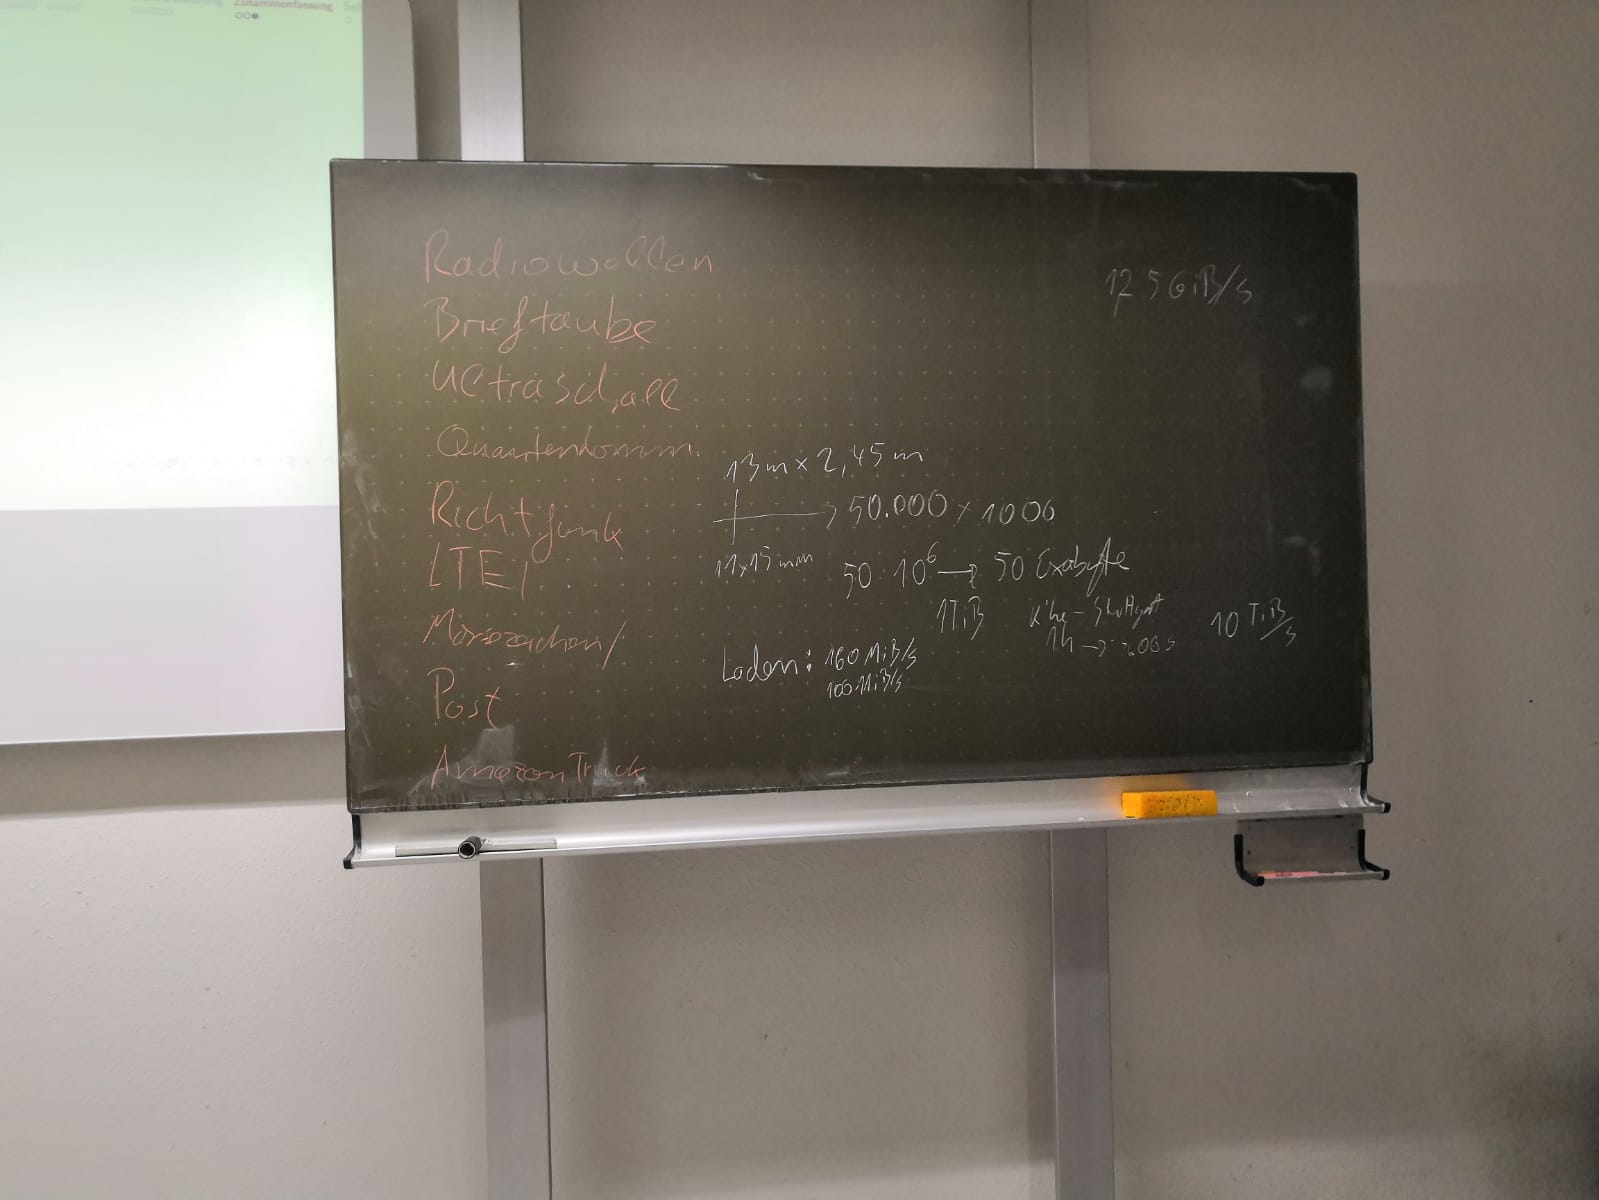 Zusammenfassung
Radiowellen
Brieftaube
Ultraschall
Quantenkomm.
Richtfunk
LTE/
Morsezeichen/
Post
Amazon Truck
12,5 GiB/s
13m x 2,45 m
→ 50.000 x 1000
11x15 mm
50 · 10⁶ → 50 Exabyte
1TiB
K'he - Stuttgart
1h →
10 TiB/s
Laden: 160 MiB/s
100 MiB/s